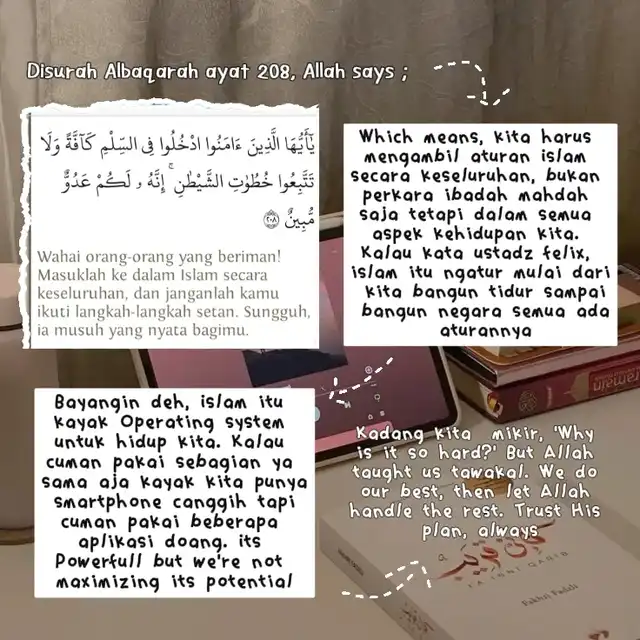 Disurah Albaqarah ayat 208, Allah says ;
يٰٓأَيُّهَا الَّذِينَ ءَامَنُوا ادْخُلُوا فِى السِّلْمِ كَآفَّةً وَلَا
تَتَّبِعُوا خُطُوٰتِ الشَّيْطٰنِ ۚ إِنَّهُۥ لَكُمْ عَدُوٌّ
مُّبِينٌ ﴿٢٠٨﴾
Wahai orang-orang yang beriman!
Masuklah ke dalam Islam secara
keseluruhan, dan janganlah kamu
ikuti langkah-langkah setan. Sungguh,
ia musuh yang nyata bagimu.
Which means, kita harus
mengambil aturan islam
secara keseluruhan, bukan
perkara ibadah mahdah
saja tetapi dalam semua
aspek kehidupan kita.
Kalau kata ustadz felix,
islam itu ngatur mulai dari
kita bangun tidur sampai
bangun negara semua ada
aturannya
Bayangin deh, islam itu
kayak Operating system
untuk hidup kita. Kalau
cuman pakai sebagian ya
sama aja kayak kita punya
smartphone canggih tapi
cuman pakai beberapa
aplikasi doang. its
Powerfull but we're not
maximizing its potential
Kadang kita mikir, 'Why
is it so hard?' But Allah
taught us tawakal. We do
our best, then let Allah
handle the rest. Trust His
plan, always
FA INNI QARIB